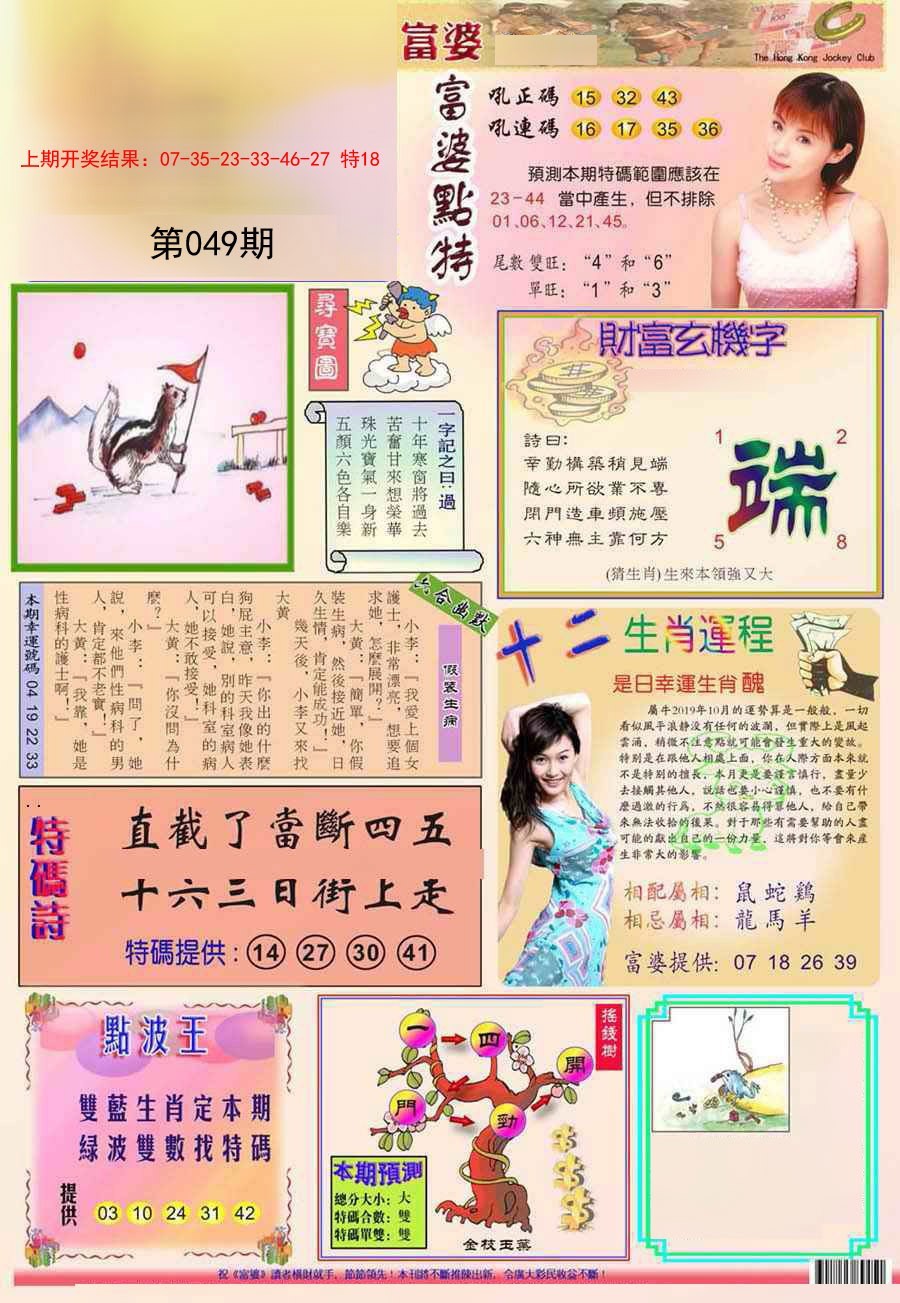 富婆
The Hong Kong Jockey Club
上期开奖结果：07-35-23-33-46-27 特18
第049期
富婆點特
吼正碼 15 32 43
吼連碼 16 17 35 36
預測本期特碼範圍應該在
23-44 當中產生，但不排除
01、06、12、21、45。
尾數雙旺：“4”和“6”
單旺：“1”和“3”
尋寶圖
一字記之曰：過
十年寒窗將過去
苦奮甘來想榮華
珠光寶氣一身新
五顏六色各自樂
財富玄機字
詩曰：
幸勤構築稍見端
隨心所欲業不專
閉門造車頻施壓
六神無主靠何方
1 2
端
5 8
(猜生肖)生來本領強又大
六合幽默
假裝生病
小李：『我愛上個女
護士，非常漂亮，想要追
求她，怎麼展開？』
大黃：『簡單，你假
裝生病，然後接近她，日
久生情，肯定能成功！』
幾天後，小李又來找
大黃
小李：『你出的什麼
狗屁主意，昨天我像她表
白，她說，別的科室病人
可以接受，她科室的病
人，她不敢接受！』
大黃：『你沒問為什
麼？』
小李：『問了，她
說，來他們性病科的男
人，肯定都不老實！』
大黃：『我靠，她是
性病科的護士啊！』
本期幸運號碼 04 19 22 33
十二生肖運程
是日幸運生肖 醜
屬牛2019年10月的運勢算是一般般，一切
看似風平浪静没有任何的波瀾，但實際上是風起
雲涌，稍微不注意點就可能會發生重大的變故。
特别是在跟他人相處上面，你在人際方面本來就
不是特别的擅長，本月更是要謹言慎行，盡量少
去接觸其他人，説話也要小心謹慎，也不要有什
麽過激的行爲，不然很容易得罪他人，給自己帶
來無法收拾的後果。對于那些有需要幫助的人盡
可能的獻出自己的一份力量，這將對你等會來産
生非常大的影響。
相配屬相：鼠蛇鷄
相忌屬相：龍馬羊
富婆提供：07 18 26 39
特碼詩
直截了當斷四五
十六三日街上走
特碼提供：14 27 30 41
點波王
雙藍生肖定本期
緑波雙數找特碼
提供 03 10 24 31 42
搖錢樹
一 四 開
門 勁
本期預測
總分大小：大
特碼合數：雙
特碼單雙：雙
金枝玉葉
祝《富婆》讀者橫財就手，節節領先！本刊將不斷推陳出新，令廣大彩民收益不斷！